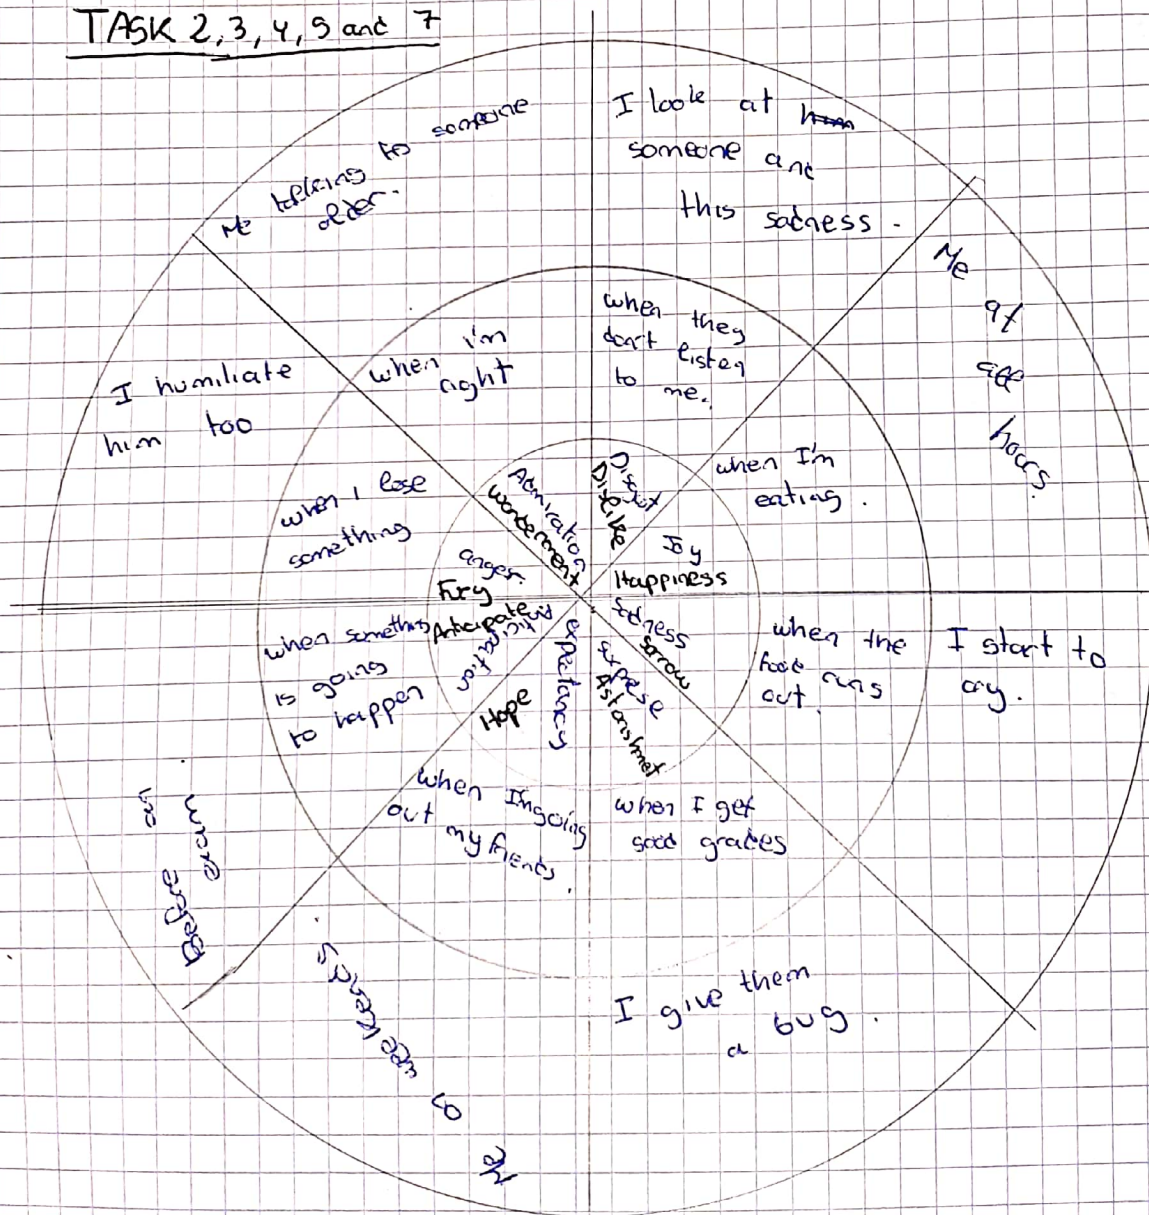 TASK 2, 3, 4, 5 and 7
Me talking to someone
older.
I look at
someone and
this sadness.
Me
at
all
hours.
I humiliate
him too
when I'm
right
when they
don't listen
to me.
when I'm
eating.
when I lose
something
Admiration
wonderment
Disgut
Dislike
Joy
Happiness
anger.
Fury
Anticipate
sadness
sorrow
expectancy
Hope
Astonishmet
when something
is going
to happen
when the
food runs
out.
I start to
cy.
when I'm going
out my friends.
when I get
good grades
Before
an
exam.
Me
on
weekends.
I give them
a bug.